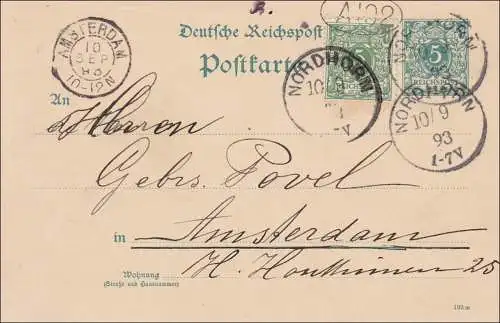 A132
Deutsche Reichspost
Postkarte
AMSTERDAM
10
SEP
93
10-12N
5
NORDHORN
10/9
93
1-7V
5
REICHSPOST
NORDHORN
NORDHORN
10/9
93
1-7V
An
Herren
Gebrs. Povel
in Amsterdam
Wohnung
(Straße und Hausnummer)
H. Houttuinen 25